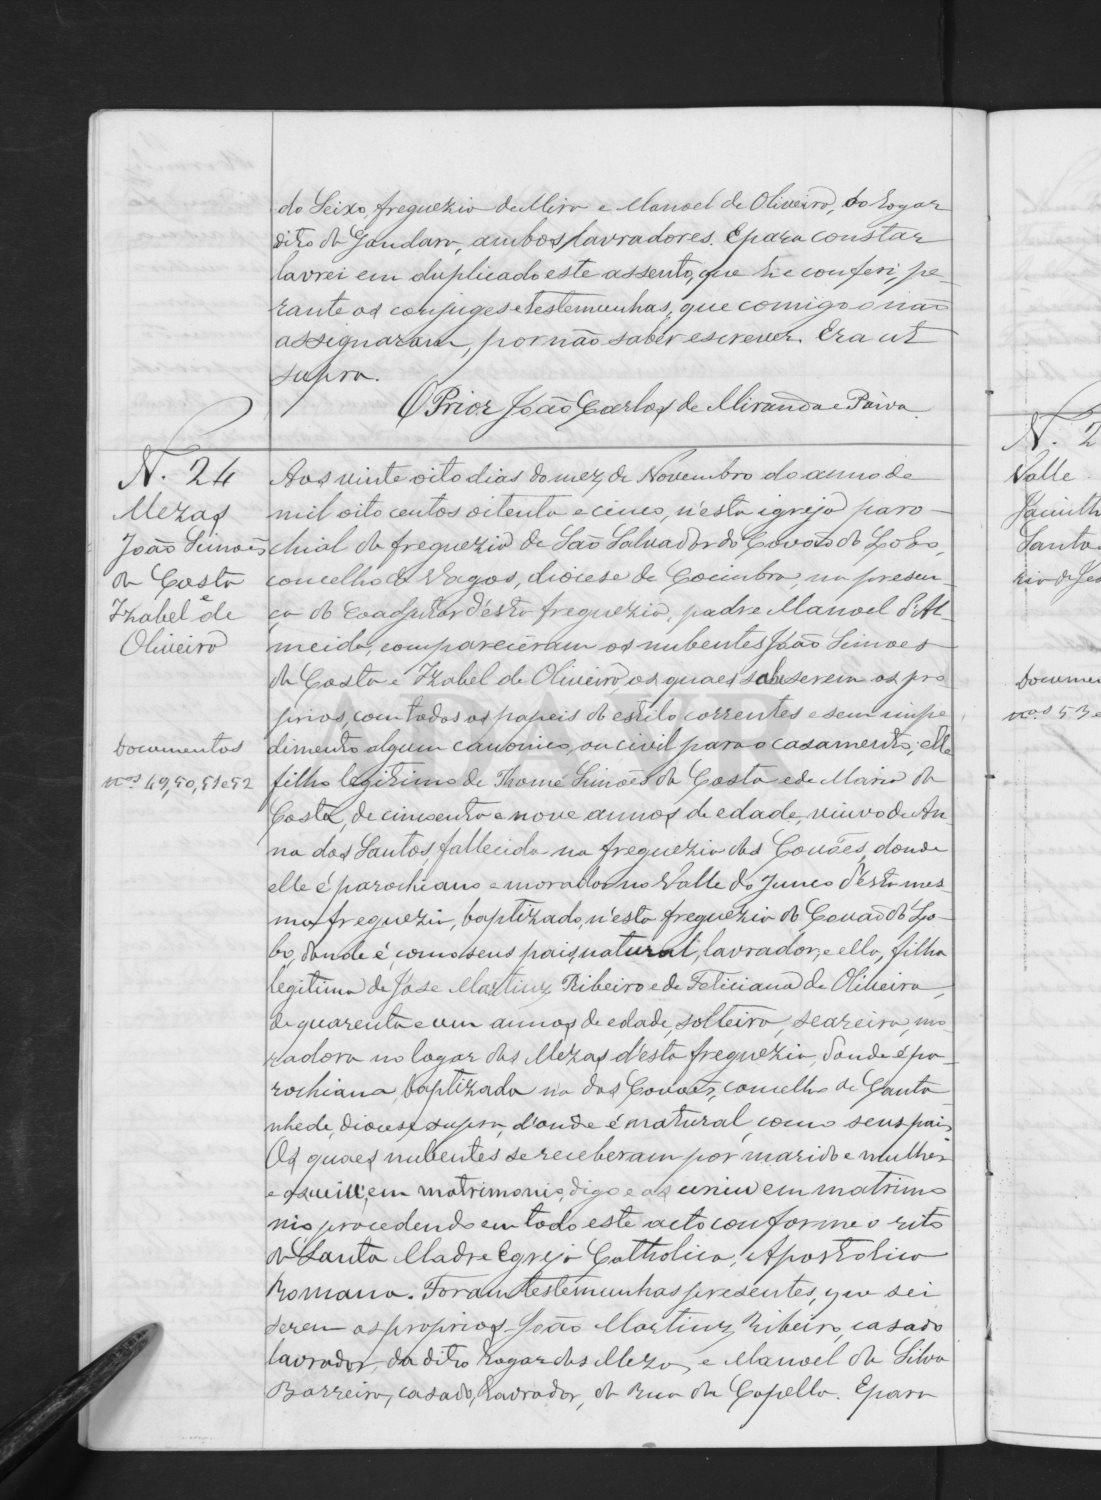 do Seixo, freguezia de Mira e Manoel de Oliveira, do logar
dito da Gandara, ambos lavradores. E para constar
lavrei em duplicado este assento, que li e conferi, pe-
rante os conjuges e testemunhas, que comigo não
assignaram, por não saber escrever. Era ut
supra.
O Prior João Carlos de Miranda e Paiva.
N. 24
Mezas
João Simões
da Costa
e
Izabel de
Oliveira
Documentos
nos 49, 50, 51 e 52
Aos vinte oito dias do mez de Novembro do anno de
mil oito centos oitenta e cinco, n'esta igreja paro-
chial da freguezia de São Salvador do Covão do Lobo,
concelho de Vagos, diocese de Coimbra na presen-
ça do Coadjutor d'esta freguezia, padre Manoel d'Al-
meida, compareceram os nubentes João Simoes
da Costa e Izabel de Oliveira, os quaes sei serem os pro
prios, com todos os papeis do estilo correntes e sem impe
dimento algum canonico, ou civil para o casamento; elle
filho legitimo de Thomé Simões da Costa e de Maria da
Costa, de cincoenta e nove annos de edade, viuvo de An-
na dos Santos, fallecida na freguezia das Covões, donde
elle é parochiano e morador no Valle do Junco d'esta mes-
ma freguezia, baptizado, n'esta freguezia do Covão do Lo-
bo, donde é, como seus pais, natural, lavrador, e ella, filha
legitima de José Martins Ribeiro e de Feliciana de Oliveira,
de quarenta e um annos de edade, solteira, seareira, mo-
radora no logar das Mezas d'esta freguezia, donde é pa-
rochiana, baptizada na dos Covões, concelho de Canta-
nhede, diocese supra, d'onde é natural, como seus pais
Os quaes nubentes se receberam por marido e mulher
e os uni em matrimonio, digo e os uniu em matrimo
nio, procedendo em todo este acto conforme o rito
da Santa Madre Egreja Catholica, Apostolica
Romana. Foram testemunhas presentes, que sei
serem os proprios João Martins Ribeiro, casado
lavrador, do dito logar das Mezas, e Manoel da Silva
Barreira, casado, lavrador, da Rua da Capella. E para
N. 2
Valle
Jacinth
Santa
ria de Jes
Documen
nos 53 e